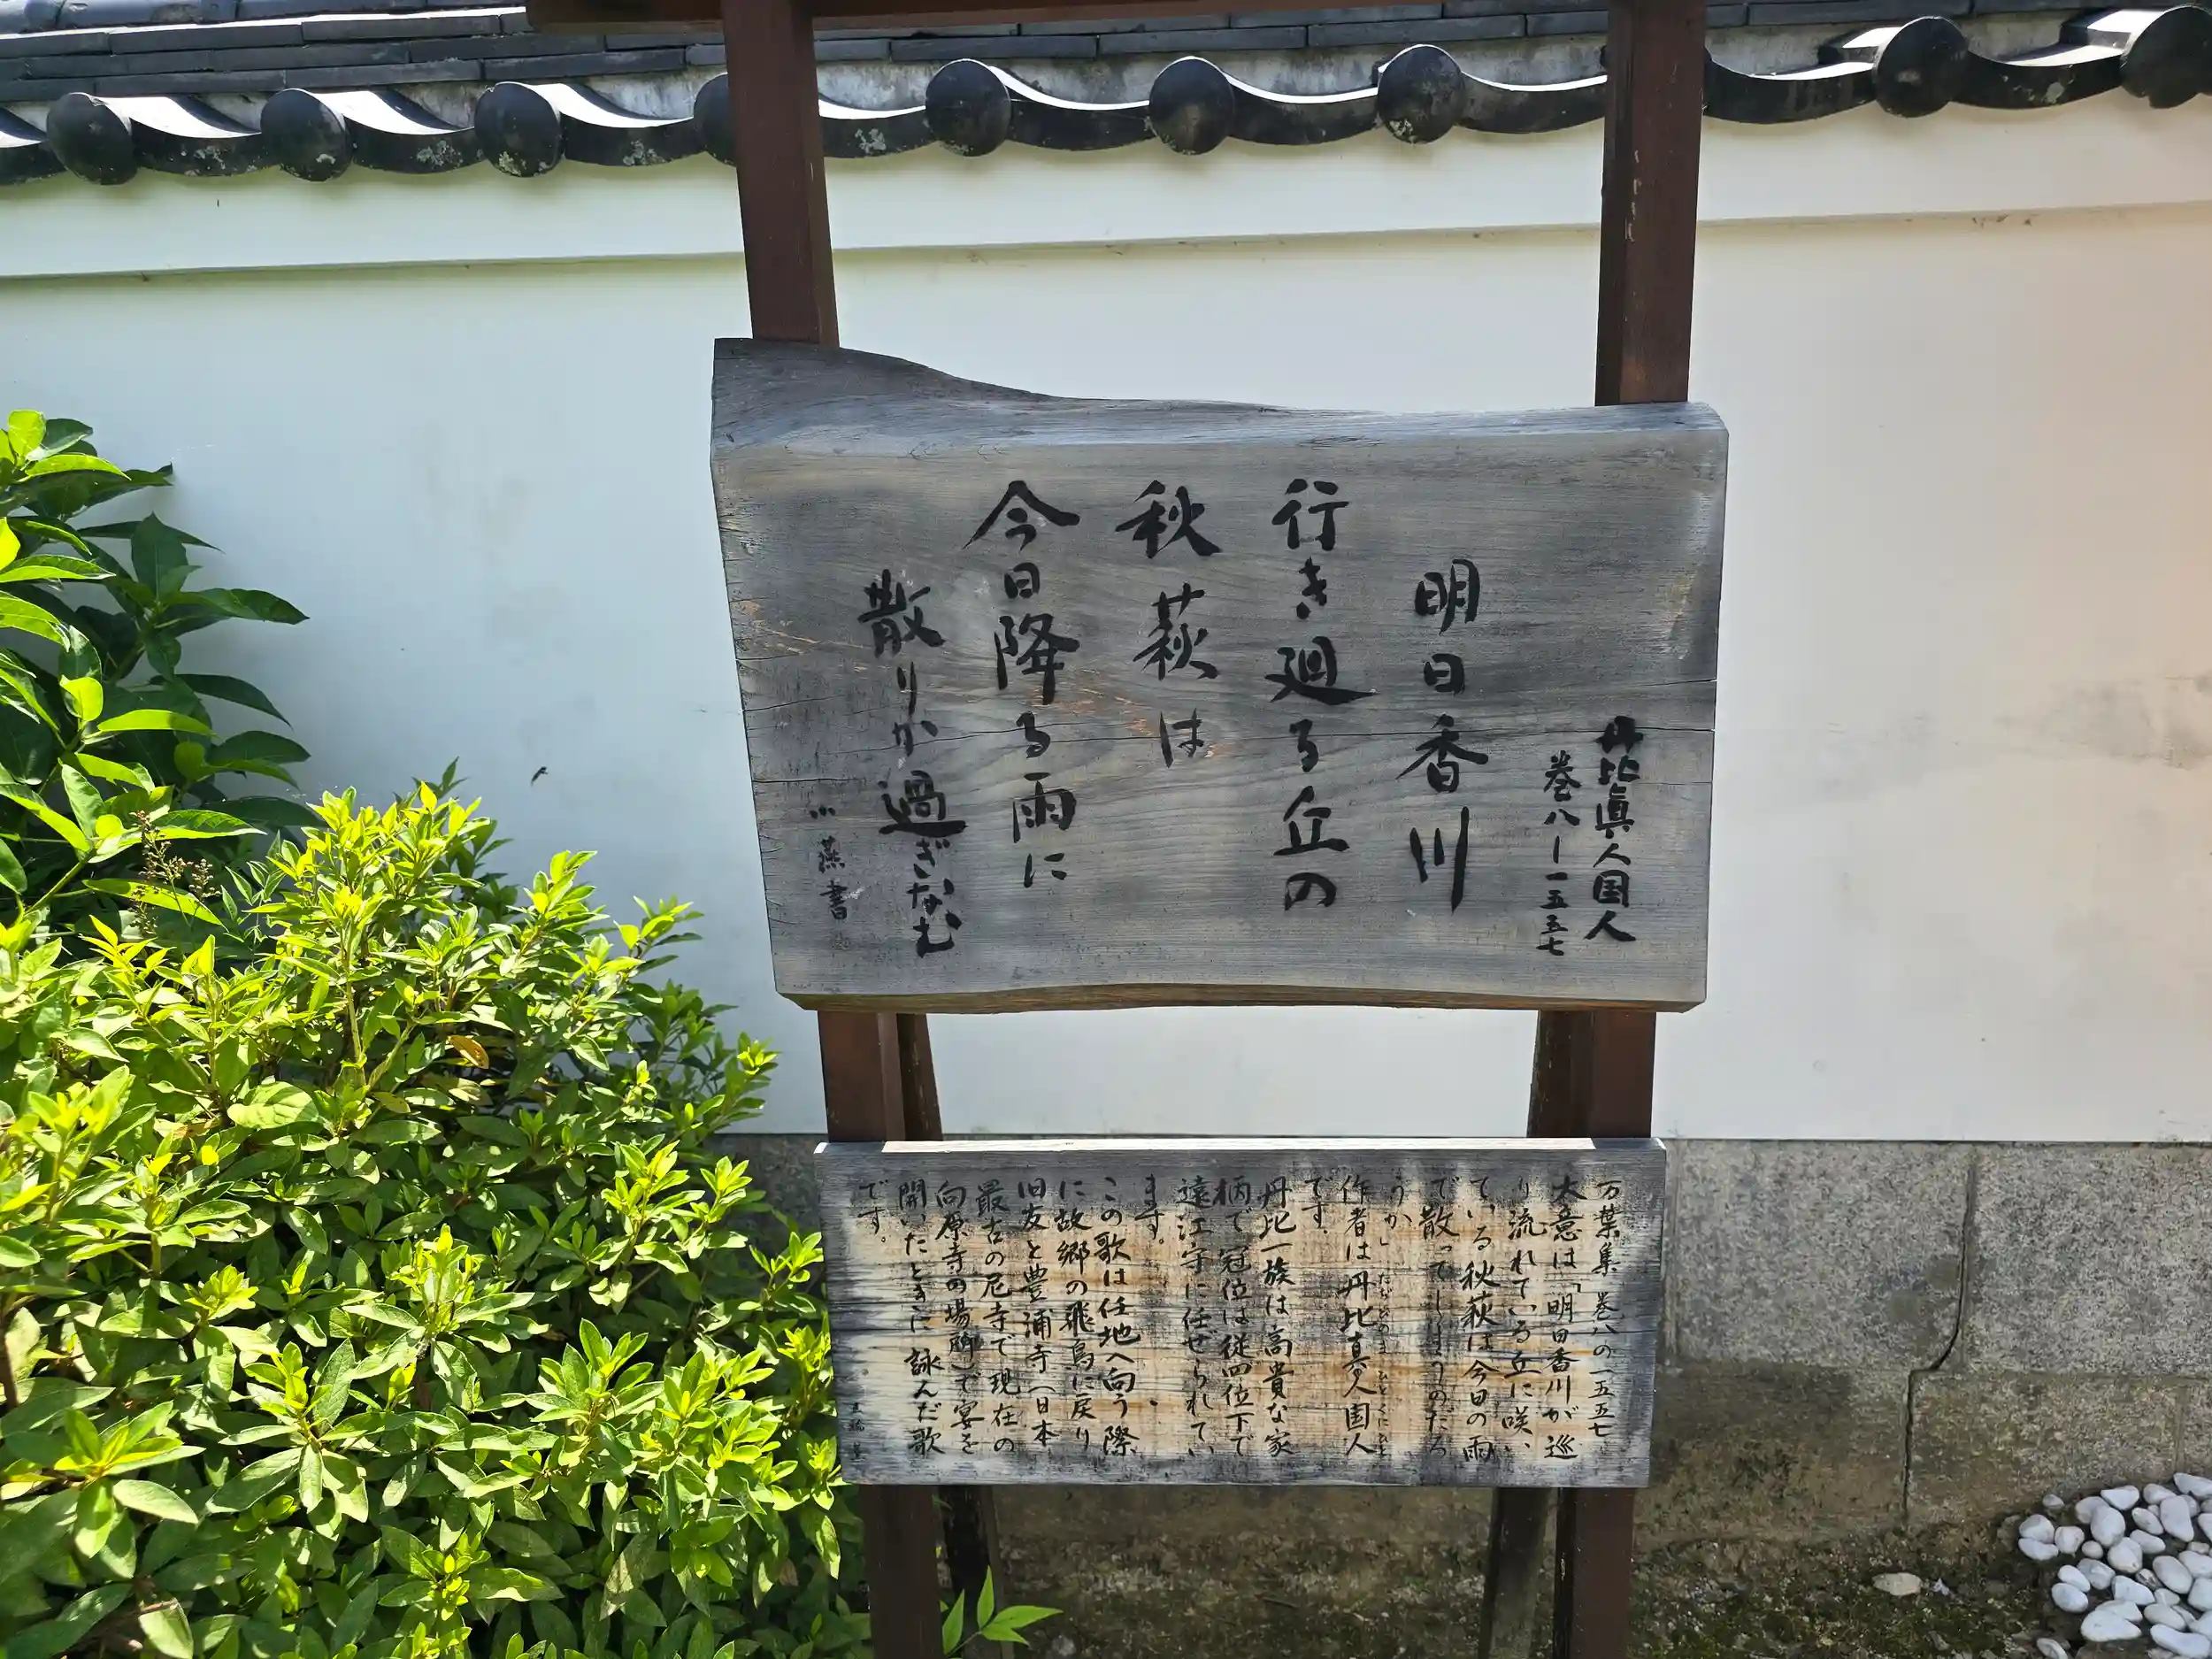 丹比眞人国人
巻八ー一五五七
明日香川
行き廻る丘の
秋萩は
今日降る雨に
散りか過ぎなむ
小燕書
万葉集 巻八の一五五七
大意は「明日香川が巡
り流れている丘に咲い
ている秋萩は今日の雨
で散ってしまうのだろ
うか」
たぢひのま ひとくにひと
作者は丹比真人国人
です。
丹比一族は高貴な家
柄で冠位は従四位下で
遠江守に任ぜられてい
ます。
この歌は任地へ向う際
に故郷の飛鳥に戻り
旧友と豊浦寺(日本
最古の尼寺で現在の
向原寺の場所)で宴を
開いたときに詠んだ歌
です。